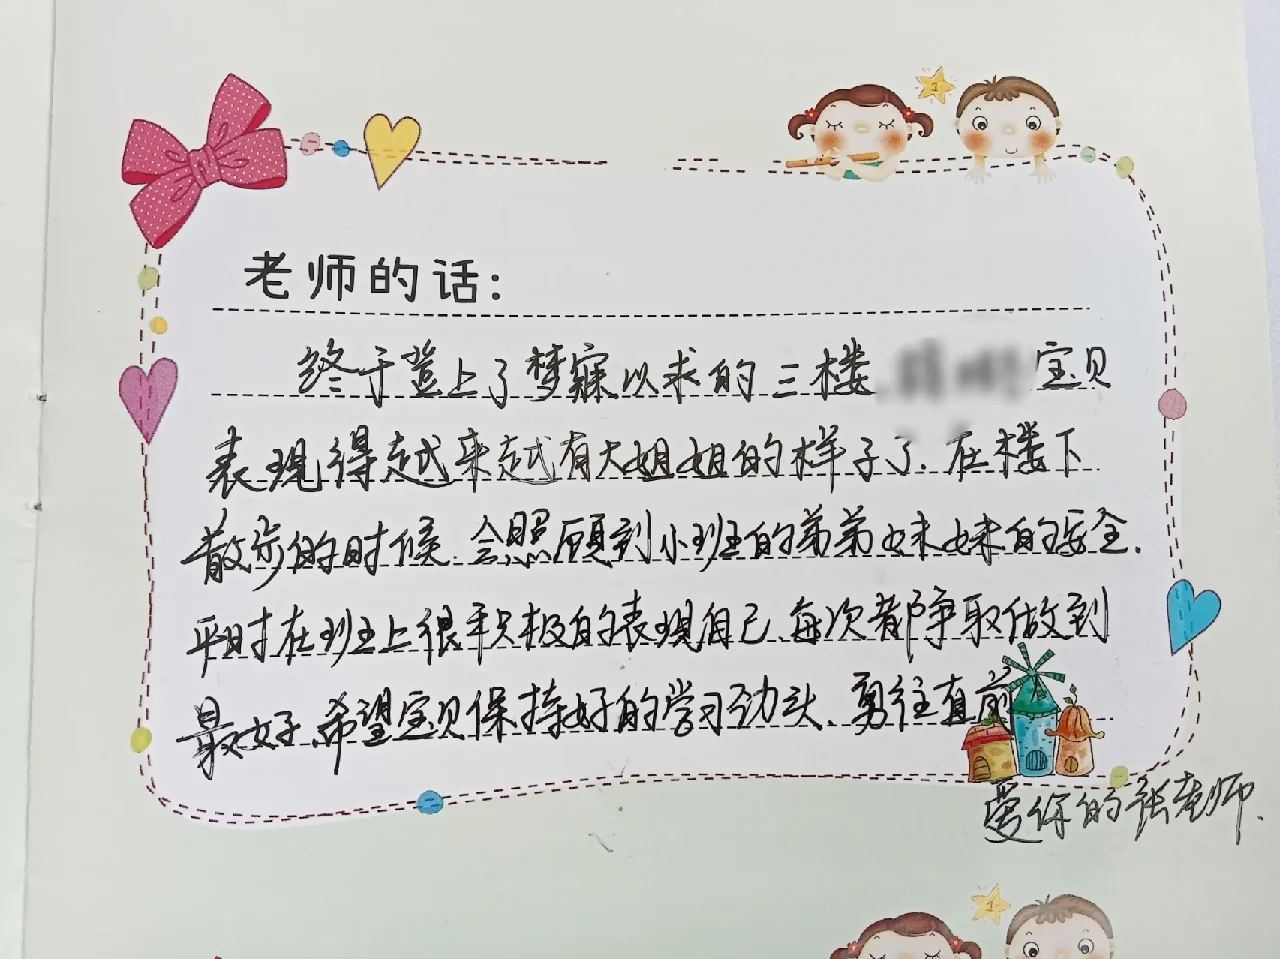 老师的话：
终于登上了梦寐以求的三楼、宝贝
表现得越来越有大姐姐的样子了.在楼下
散步的时候.会照顾到小班的弟弟妹妹的安全.
平时在班上很积极的表现自己.每次都争取做到
最好.希望宝贝保持好的学习劲头、勇往直前
爱你的张老师.
1
1